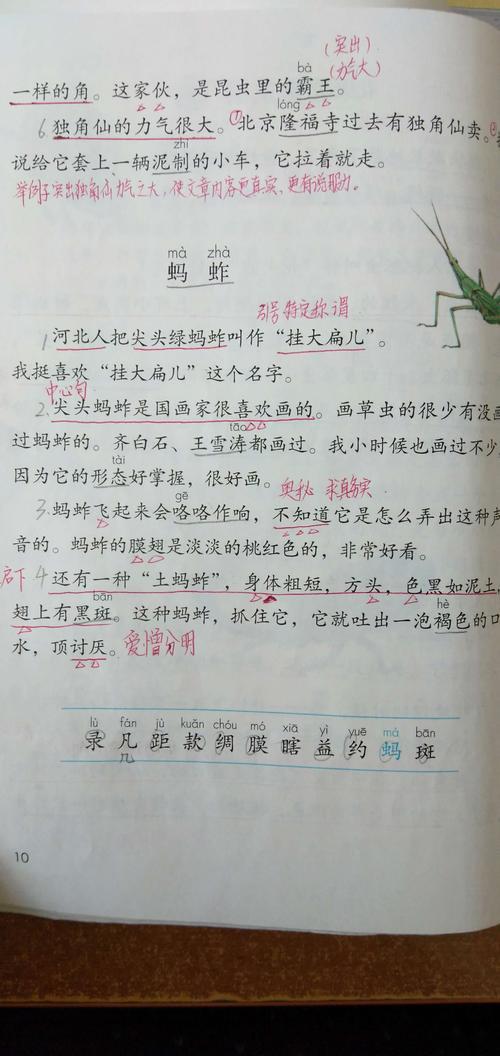 （突出）
bà （力气大）
一样的角。这家伙，是昆虫里的霸王。
lóng
6 独角仙的力气很大。①北京隆福寺过去有独角仙卖。
zhì
说给它套上一辆泥制的小车，它拉着就走。
举例子突出独角仙力气之大，使文章内容更真实，更有说服力。
mà zhà
蚂 蚱
引号 特定称谓
1 河北人把尖头绿蚂蚱叫作“挂大扁儿”。
我挺喜欢“挂大扁儿”这个名字。
中心句
2. 尖头蚂蚱是国画家很喜欢画的。画草虫的很少有没画
tāo
过蚂蚱的。齐白石、王雪涛都画过。我小时候也画过不少
tài
因为它的形态好掌握，很好画。
奥秘 求真务实
gē
3. 蚂蚱飞起来会咯咯作响，不知道它是怎么弄出这种声
音的。蚂蚱的膜翅是淡淡的桃红色的，非常好看。
启下 4 还有一种“土蚂蚱”，身体粗短，方头，色黑如泥土，
bān hè
翅上有黑斑。这种蚂蚱，抓住它，它就吐出一泡褐色的口
水，顶讨厌。爱憎分明
lù fán jù kuǎn chóu mó xiā yì yuē mà bān
录 凡 距 款 绸 膜 瞎 益 约 蚂 斑
几
10